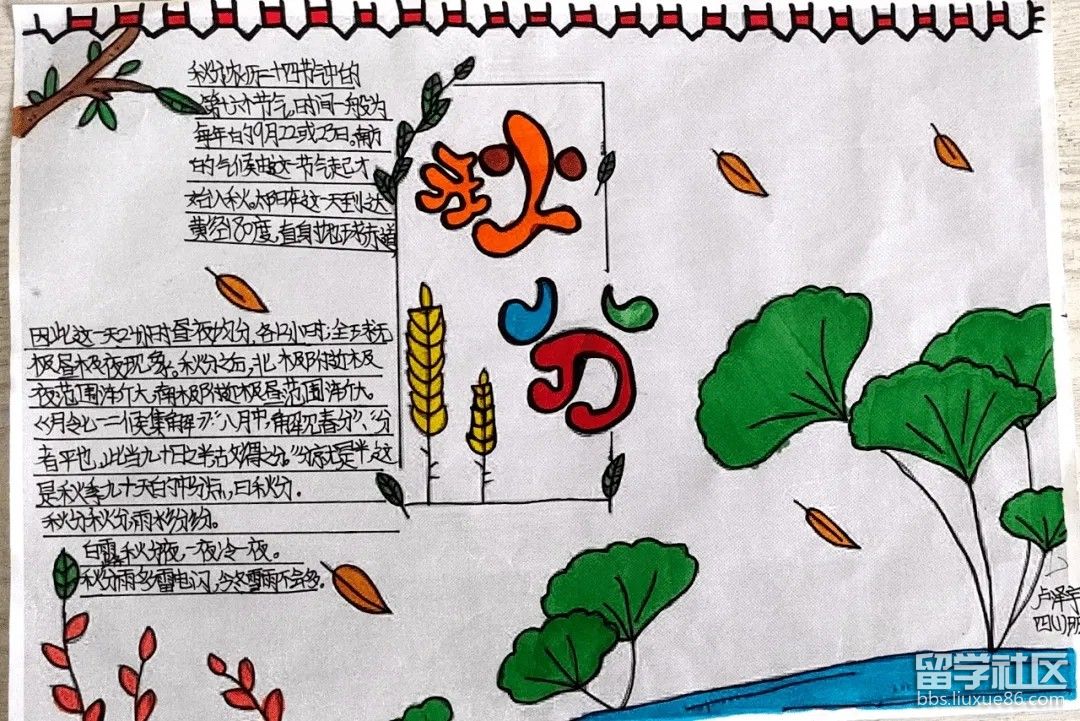 秋分农历二十四节气中的
第十六个节气,时间一般为
每年的9月22或23日。南方
的气候由这一节气起才
始入秋。太阳在这一天到达
黄径180度,直射地球赤道
因此这一天24小时昼夜均分,各12小时;全球无
极昼极夜现象。秋分之后,北极附近极
夜范围渐大,南极附近极昼范围渐大。
《月令七十二候集解》:"八月中,解见春分"、"分
者平也,此当九十日之半,故谓之分。"分就是半,这
是秋季九十天的中分点,曰秋分。
秋分秋分,雨水纷纷。
白露秋分夜,一夜冷一夜。
秋分雨多雷电闪,今冬雪雨不会多。
秋
分
卢泽宇
四川
留学社区
bbs.liuxue86.com